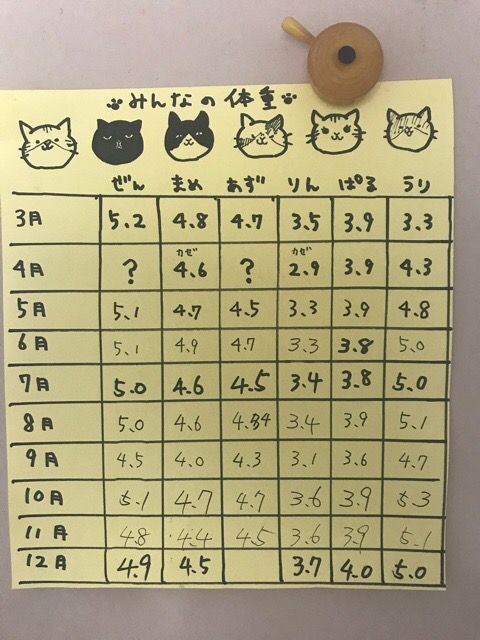 みんなの体重
ぜん まめ あず りん ぱる うり
3月 5.2 4.8 4.7 3.5 3.9 3.3
カゼ カゼ
4月 ? 4.6 ? 2.9 3.9 4.3
5月 5.1 4.7 4.5 3.3 3.9 4.8
6月 5.1 4.9 4.7 3.3 3.8 5.0
7月 5.0 4.6 4.5 3.4 3.8 5.0
8月 5.0 4.6 3.4 3.9 5.1
9月 4.5 4.0 4.3 3.1 3.6 4.7
10月 5.1 4.7 4.7 3.6 3.9 5.3
11月 4.8 4.4 4.5 3.6 3.9 5.1
12月 4.9 4.5 3.7 4.0 5.0